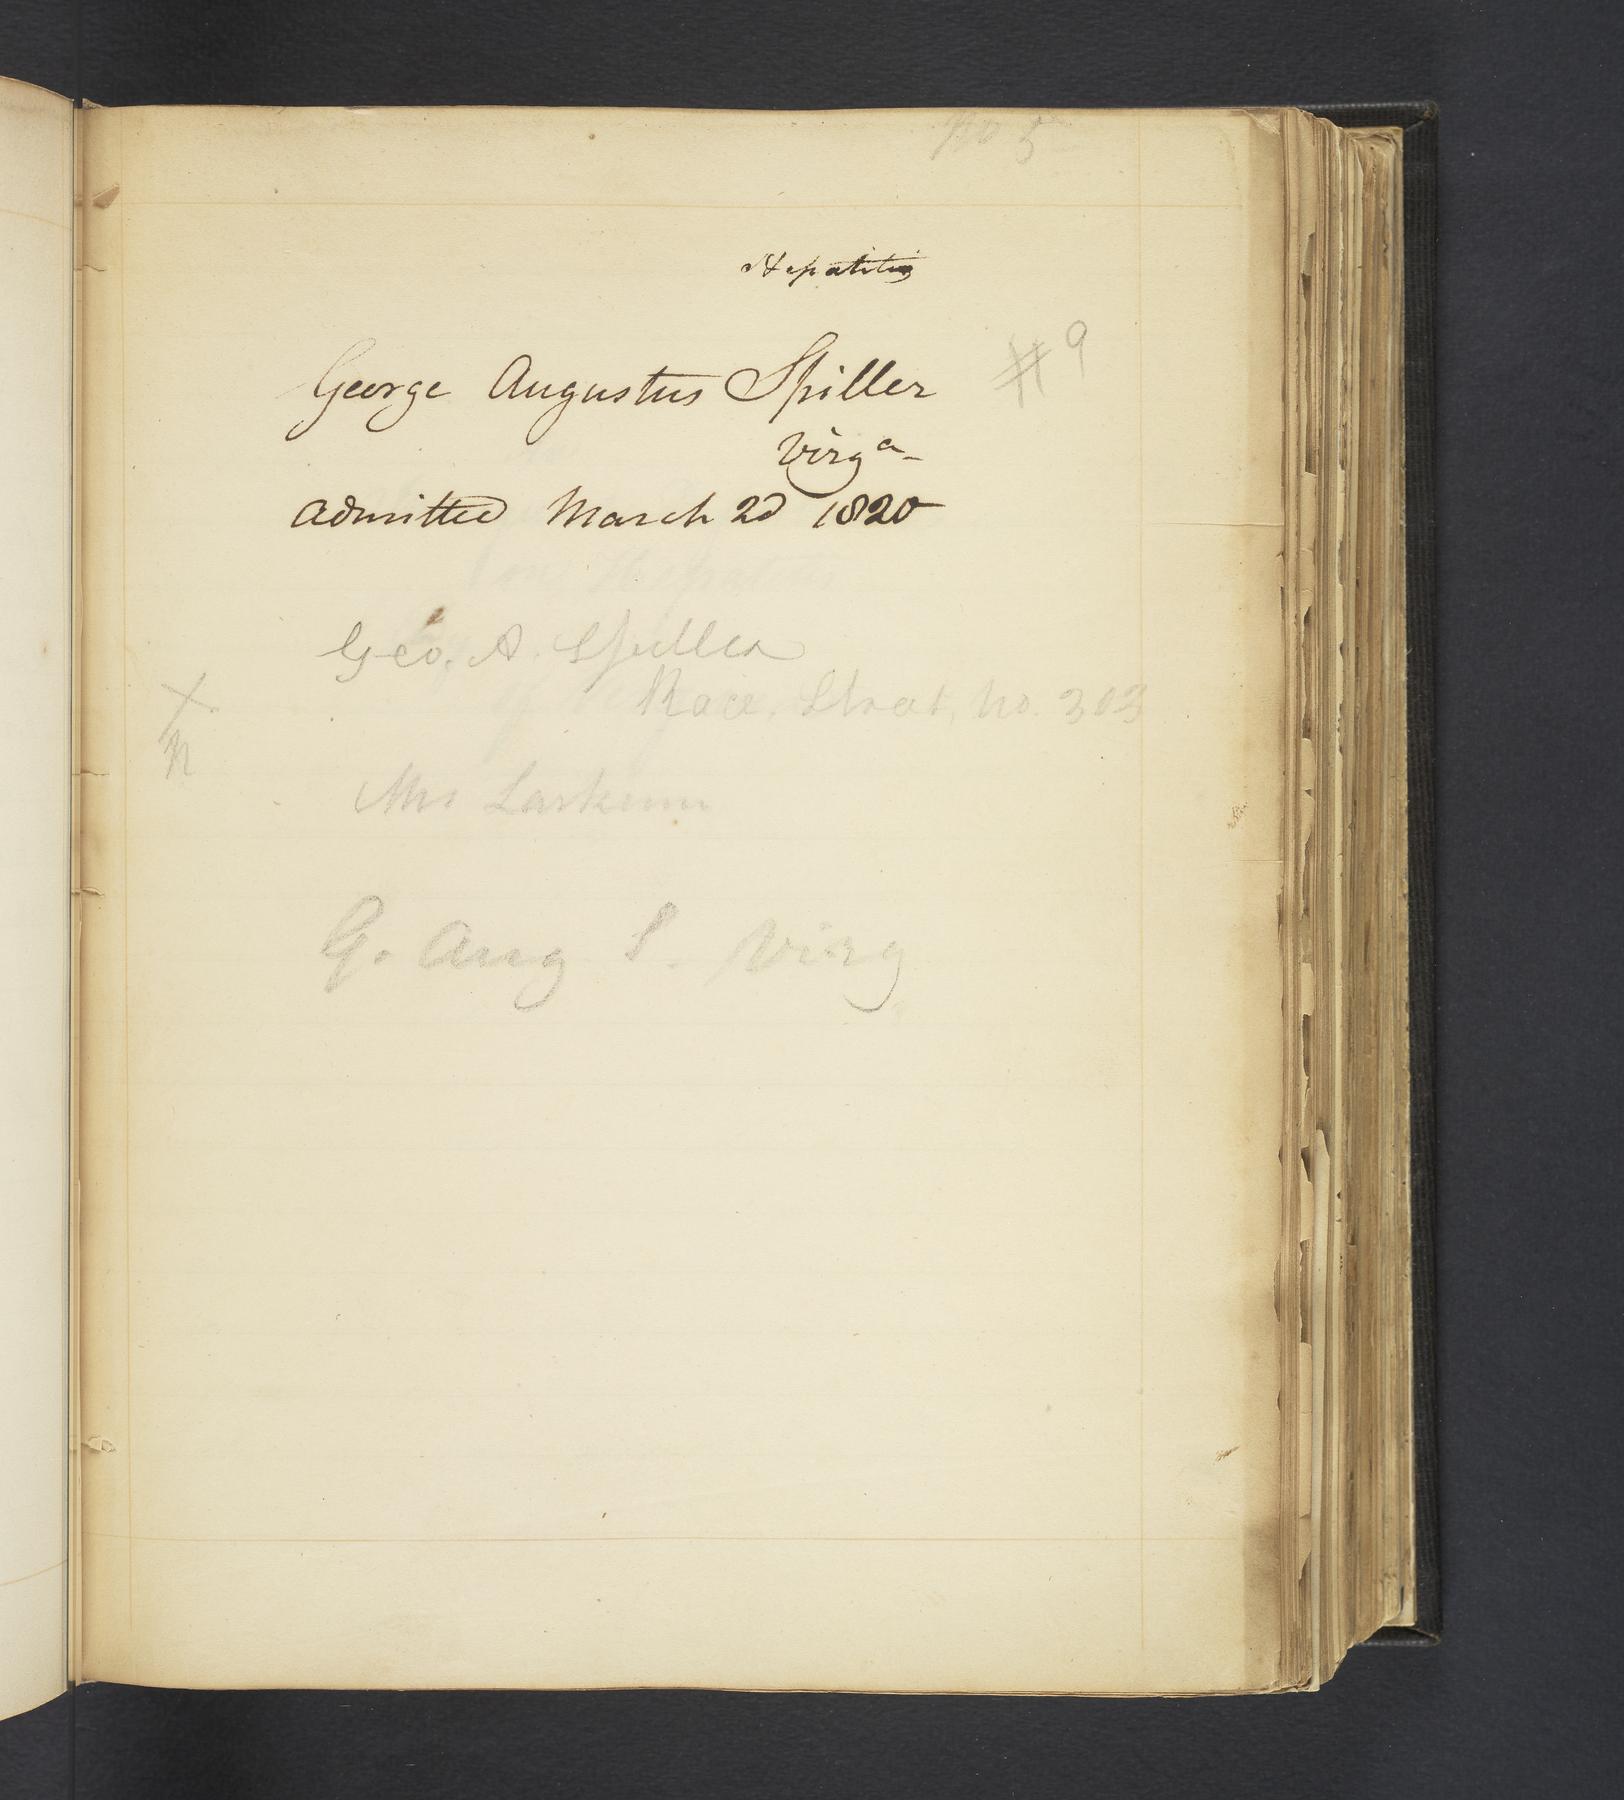 No 5
Hepatitis
George Augustus Spiller #9
Virga-
Admitted March 2d 1820
on Hepatitis
Geo. A. Spiller
Race, Street, No. 303
X
N
Mrs Larkinn
G. Aug S. Virg